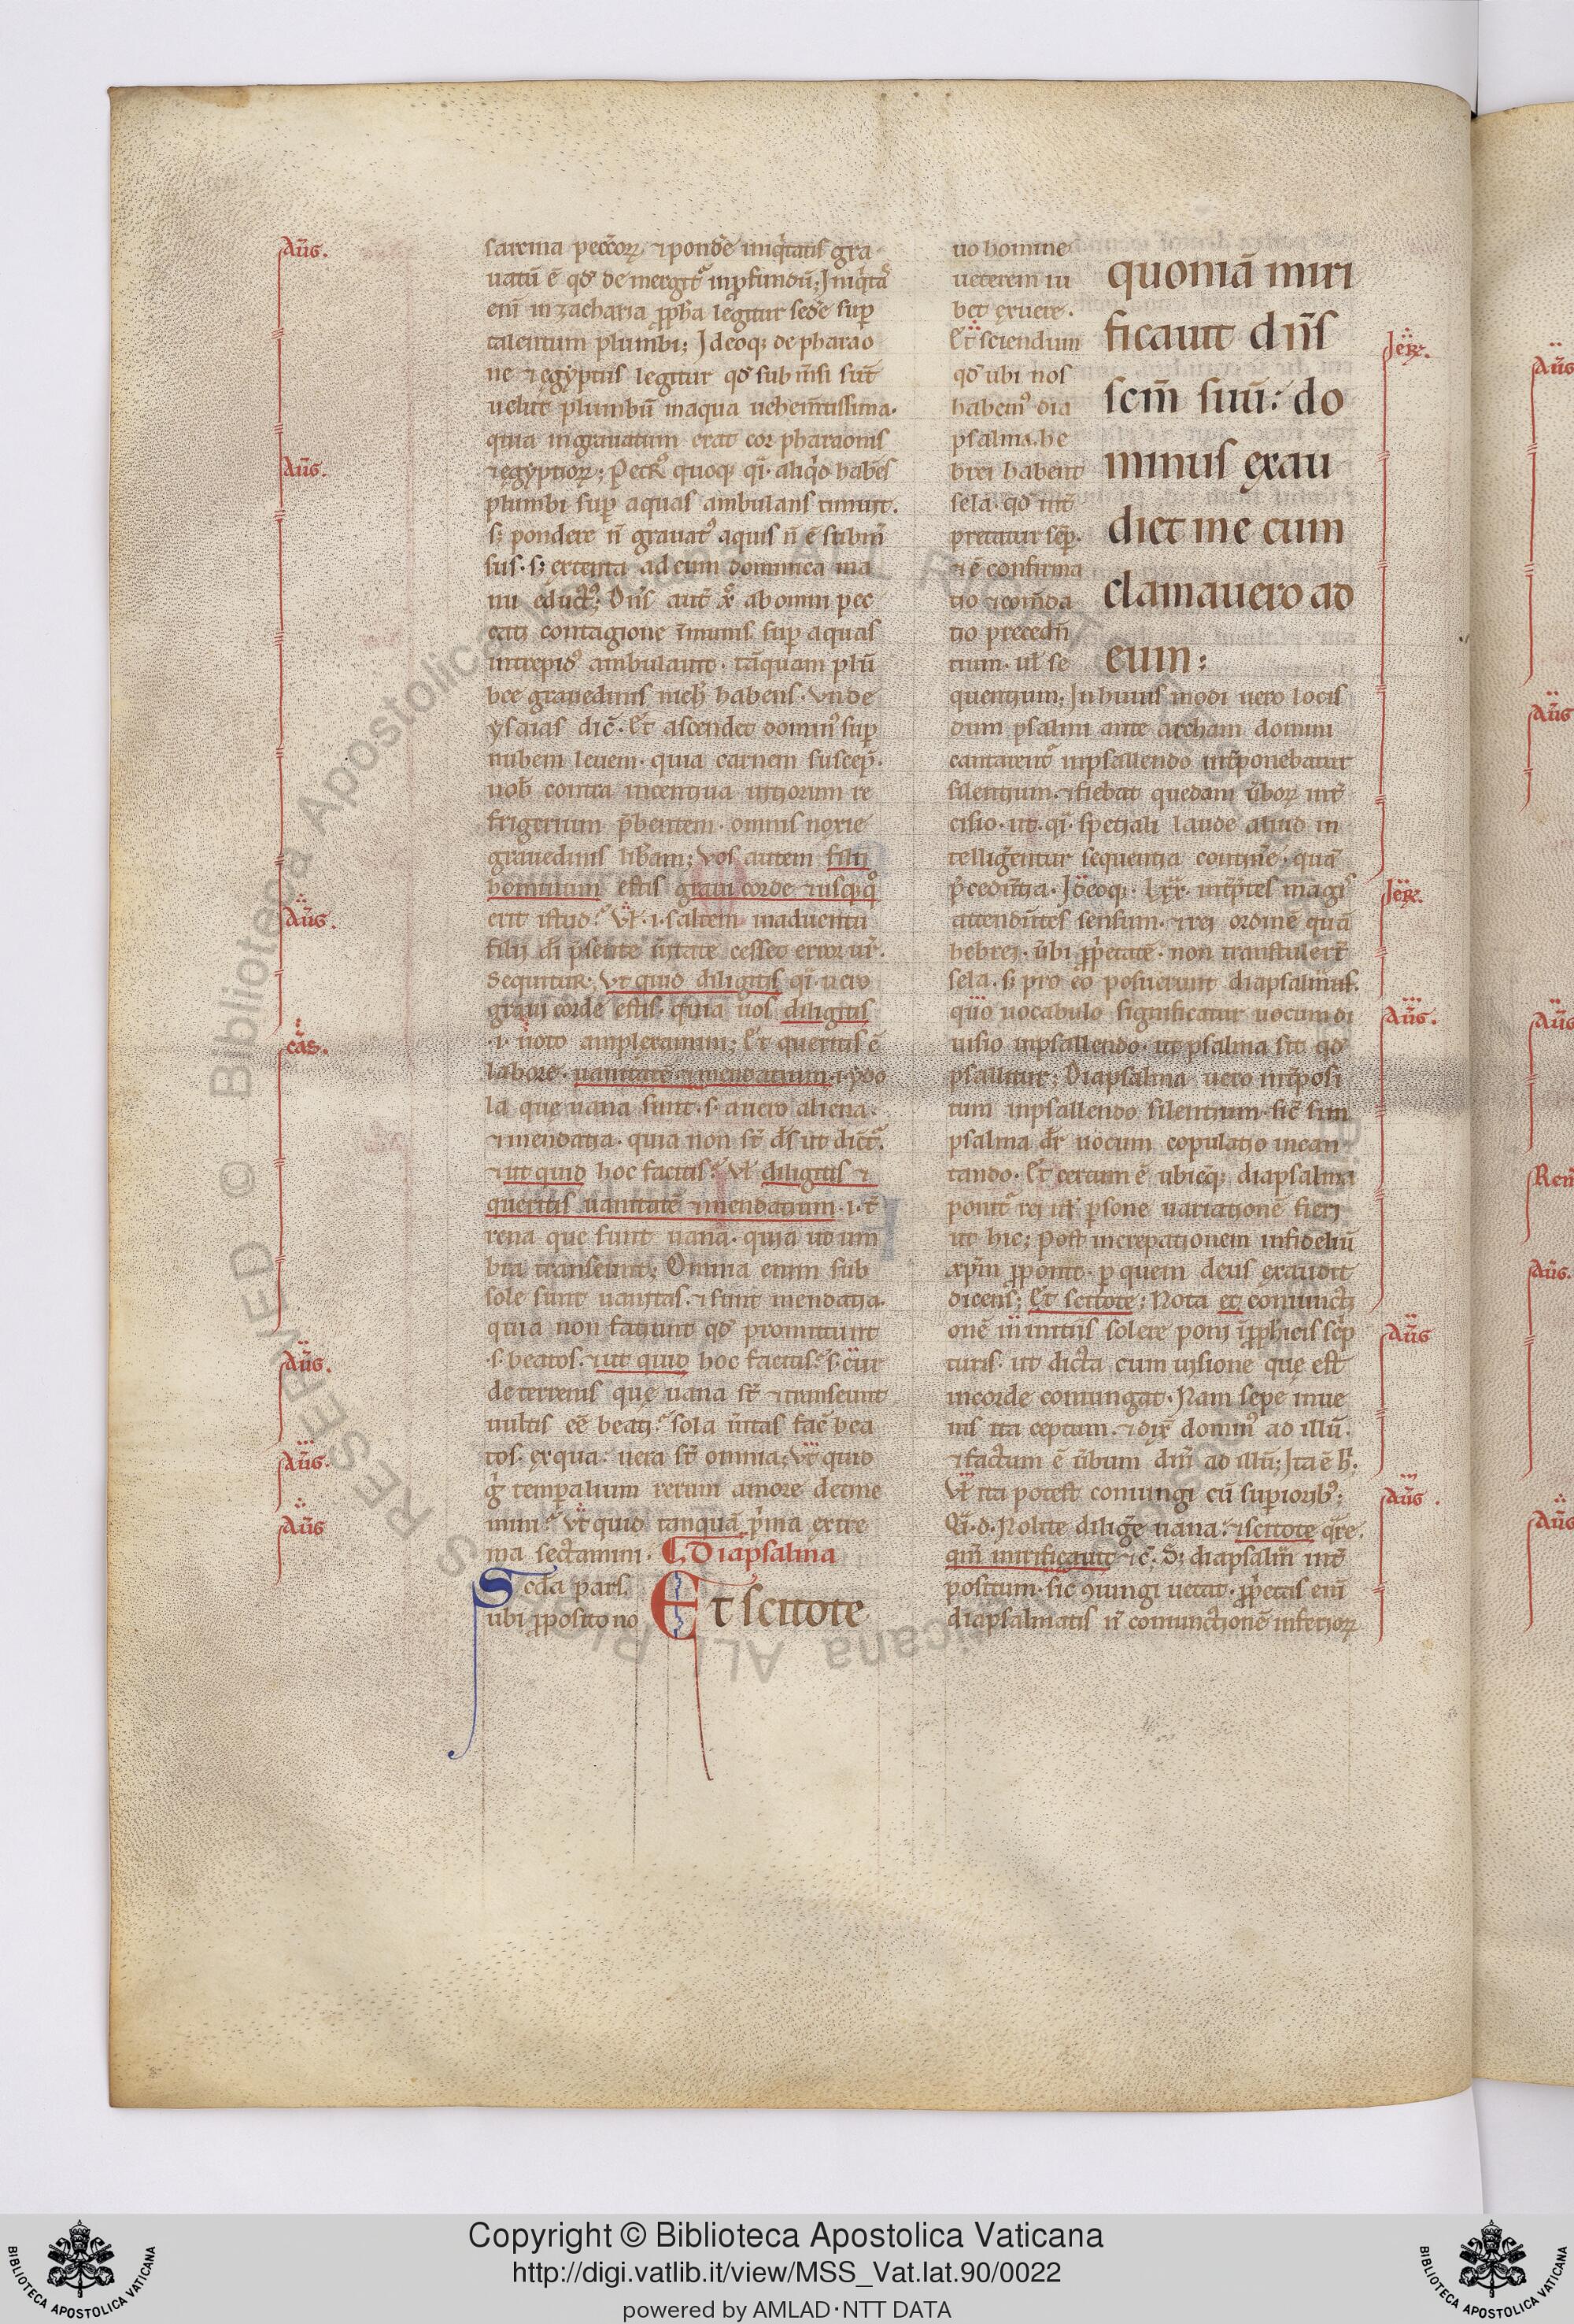 Aug̅.
sarcina peccōꝝ, ⁊ pond̄e iniq̄tatis gra
uatū ē qđ de mergit᷑ in ꝓfundū; Iniq̄ta᷑
enī in zacharia ꝓph̄a legitur sed̄e suꝑ
talentum plumbi; Ideoq; de pharao
ne ⁊ egyptiis legitur qđ sub m̄si sūt
uelut plumbū in aqua uehem̄tissima.
quia in grauatum erat cor pharaonis
Aug̅.
⁊ egyptioꝝ; Petꝰ quoq; qͥ. aliq̄d habēs
plumbi suꝑ aquas ambulans timuit.
sꝫ pondere n̄ grauatꝰ aquis n̄ ē subm̄
sus. sꝫ extenta ad eum dominica ma
nu eductꝰ; Dn̄s aut̄ xͦ ab omni pec
cati contagione īmunis suꝑ aquas
intrepidꝰ ambulauit. tāquam plū
bee grauedinis nichꝉ habens. Vnde
ysaias dic̄. Et ascendet dominꝰ suꝑ
nubem leuem. quia carnem suscep̄.
nob̄ contra incentiua uitiorum re
frigerium p̄bentem. omnis noxie
grauedinis lib̄am; Vos autem filii
hominum estis graui corde ⁊ usq; qͦ
Aug̅.
erit istud? Vꝉ .i. saltem in aduentu
filii dī p̄sente ūitate cesset error ur̄.
Sequitur. Vt quid diligitis qͥ. uero
graui corde estis. quia uos diligitis
cas̄.
.i. uoto amplexamini; Et queritis ē
labore. uanitatē ⁊ mendatium .i. ydo
la que uana sunt. s. a uero aliena.
⁊ mendatia. quia non st̄ dīs ut dict᷑.
⁊ ut quid hoc facitis? Vꝉ diligitis ⁊
queritis uanitatē ⁊ mendatium .i. t̄
rena que sunt uana. quia ut um
bra transeunt; Omnia enim sub
sole sunt uanitas. ⁊ sunt mendatia.
quia non faciunt qđ promittunt
Aug̅.
.s. beatos. ⁊ ut quid hoc facitis? s. cur
de terrenis que uana st̄ ⁊ transeunt
uultis eē beati? sola ūitas fac̄ bea
Aug̅.
tos. ex qua uera st̄ omnia; Vt quid
ḡ temꝑalium rerum amore detine
Aug̅
mini? Vt quid tanquā p̄ma extre
ma sectamini. Diapsalma
Scd̄a pars. Et scitote
ubi ꝓposito no
uo homine
ueterem iu
bet exuere.
quoniā miri
ficauit dn̄s
scm̄ suū: do
minus exau
diet me cum
clamauero ad
eum:
Ier̄.
Et sciendum
qđ ubi nos
habemꝰ dia
psalma. he
brei habent
sela. qđ int̄
pretatur semp̄.
⁊ ē confirma
tio ⁊ com̄da
tio precedn̄
tium. uꝉ se
quentium; In huius modi uero locis
dum psalmi ante archam domini
cantarent᷑ in psallendo int̄ponebatur
silentium. ⁊ fiebat quedam ūboꝝ int̄
cisio. ut qͥ. speciali laude aliud in
telligerentur sequentia contin̄e. quā
Ier̄.
p̄cedentia. Ideoq; .lxx. int̄p̄tes magis
attendentes sensum. ⁊ rei ordinē quā
hebrei. ūbi ꝓp̄etatē. non transtuler̄t
sela. sꝫ pro eo posuerunt diapsalmus.
Aug̅.
quo uocabulo significatur uocum di
uisio in psallendo. ut psalma sit qđ
psallitur; Diapsalma uero int̄posi
tum in psallendo silentium. sic̄ sim
psalma dr̄ uocum copulatio in can
tando. Et certum ē ubicq; diapsalma
ponit᷑ rei uꝉ ꝑsone uariationē fieri
ut hic; Post increpationem infideliū
xp̄m ꝓponit. ꝑ quem deus exaudit
dicens; Et scitote; Nota et coniuncti
Aug̅
onē in initiis solere poni ī ꝓph̄icis sc̄p
turis. ut dicta cum uisione que est
in corde coniungat. Nam sepe inue
nis ita ceptum. ⁊ dix̄ dominꝰ ad illū.
⁊ factum ē ūbum dn̄i ad illū; Ita ē h̄.
Aug̅.
Vꝉ ita potest coniungi cū superioribꝰ;
Qͥ. d. Nolite diliḡe uana. ⁊ scitote q̄re.
qm̄ mirificauit ⁊c̄. Sꝫ diapsalm̄ int̄
positum. sic ꝯiungi uetat. ꝓp̄etas enī
diapsalmatis n̄ coniunctionē inferioꝝ
Aug̅
Aug̅
Aug̅
Aug̅.
Aug̅
Copyright © Biblioteca Apostolica Vaticana
http://digi.vatlib.it/view/MSS_Vat.lat.90/0022
powered by AMLAD·NTT DATA
BIBLIOTECA APOSTOLICA VATICANA
BIBLIOTECA APOSTOLICA VATICANA